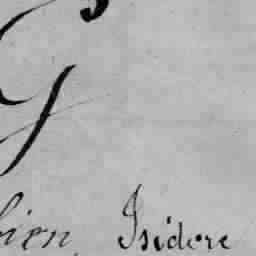 G
bien, Isidore